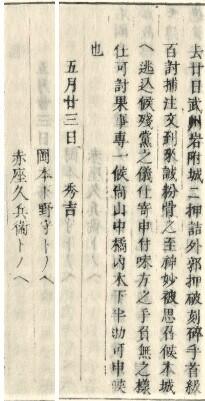 去廿日武州岩附城ニ押詰外郭押破刻碎手首級
百討捕注文到來誠粉骨之至神妙被思召候本城
ヘ逃込候殘黨之儀仕寄申付味方之手負無之樣
仕可討果事專一候尙山中橘内木下半助可申候
也
五月廿三日 秀吉
岡本下野守トノヘ
赤座久兵衞トノヘ